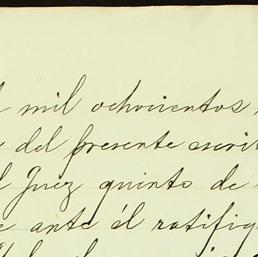 l mil ochocientos
e del presente escrit
l Juez quinto de
e ante él ratifiqu